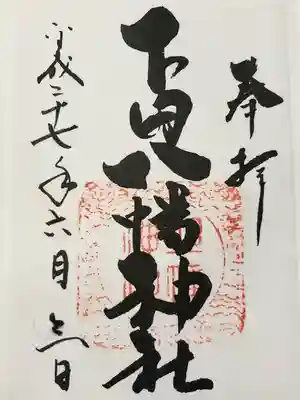 奉拝
八幡神社
平成二十七年六月六日